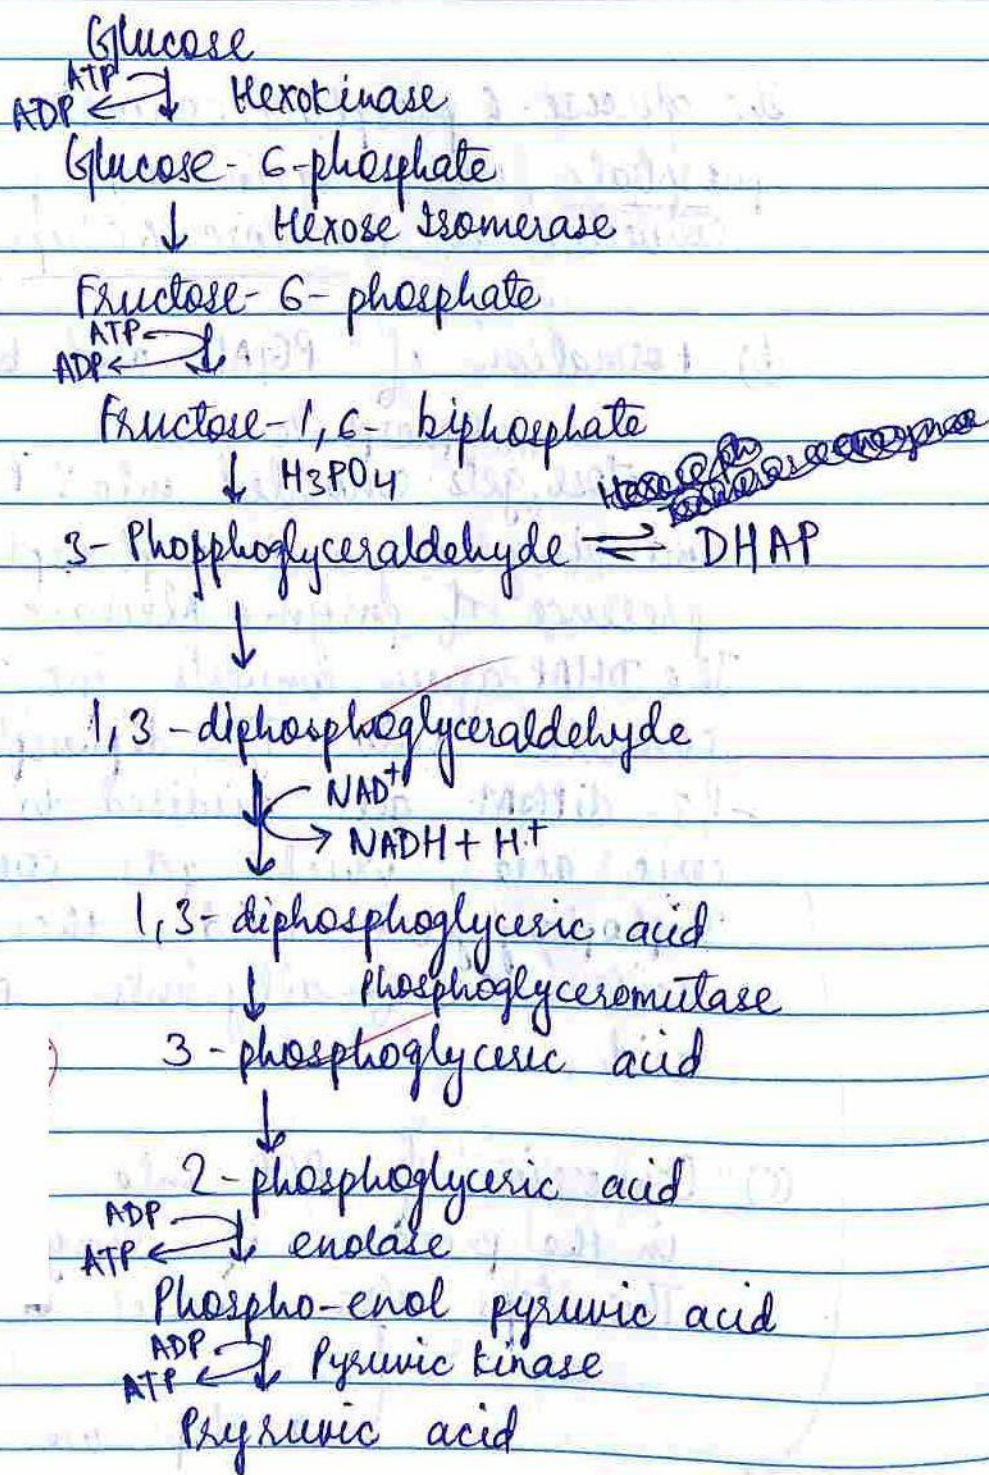 Glucose
ATP
ADP Hexokinase
Glucose - 6-phosphate
↓ Hexose Isomerase
Fructose - 6 - phosphate
ATP
ADP
Fructose-1,6- biphosphate
↓ H3PO4
3- Phopphoglyceraldehyde ⇌ DHAP
↓
1,3-diphosphoglyceraldehyde
NAD+
NADH + H+
1,3- diphosphoglyceric acid
↓ Phosphoglyceromutase
3 - phosphoglyceric acid
↓
2- phosphoglyceric acid
ADP
ATP enolase
Phospho-enol pyruvic acid
ADP Pyruvic kinase
ATP
Pryruvic acid